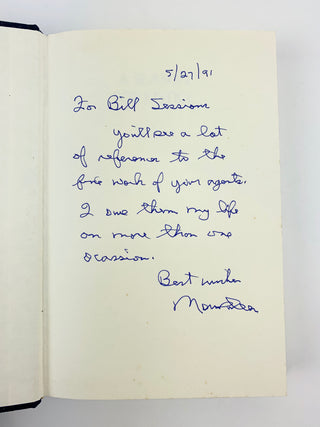 5/27/91
For Bill Sessions
you'll see a lot
of reference to the
fine work of your agents.
I owe them my life
on more than one
ocassion.
Best wishes
Morris Dees